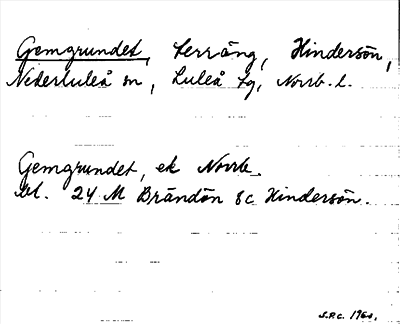 Gemgrundet, terräng, Hindersön,
Nederluleå sn, Luleå tg, Norrb. l.
Gemgrundet, ek Norrb.
bl. 24 M Brändön 8c Hindersön.
S.P.C. 1960.